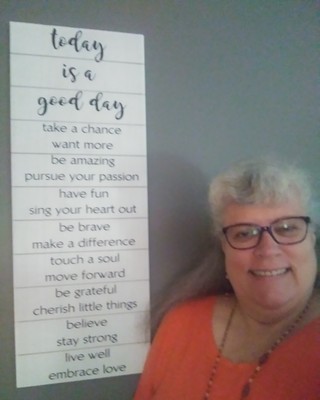 today
is a
good day
take a chance
want more
be amazing
pursue your passion
have fun
sing your heart out
be brave
make a difference
touch a soul
move forward
be grateful
cherish little things
believe
stay strong
live well
embrace love